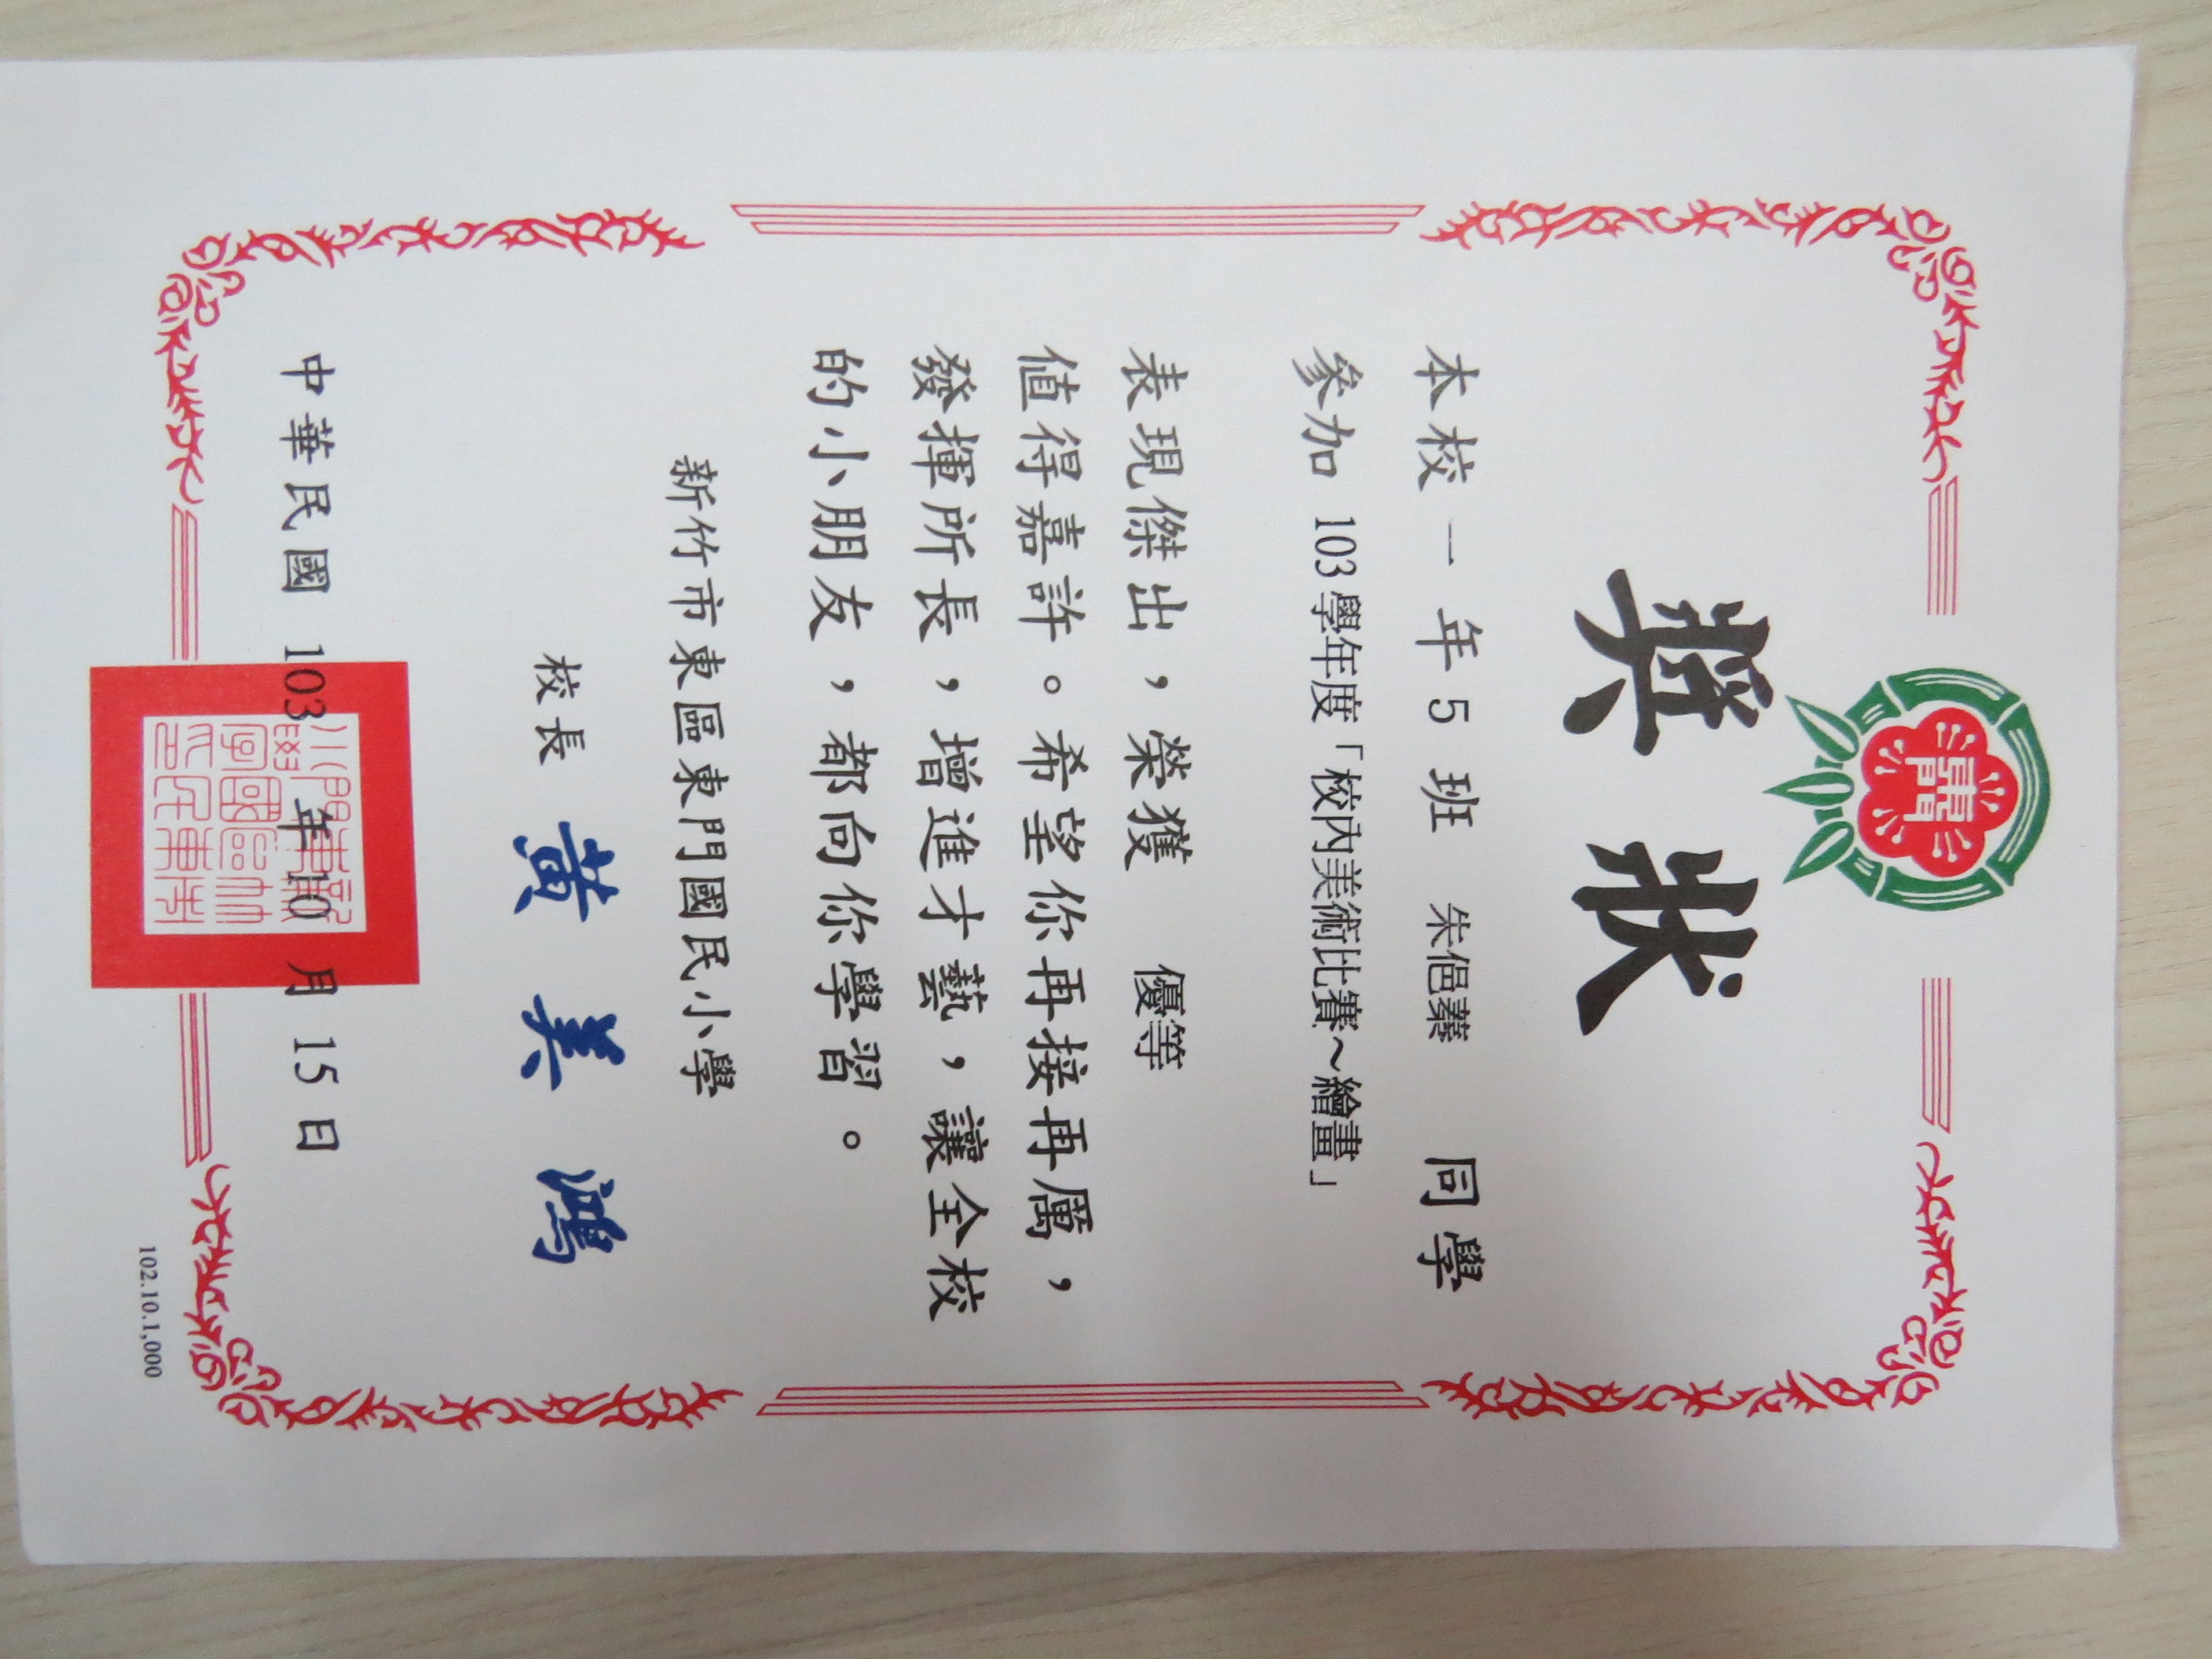 東門
獎狀
本校 一 年 5 班 朱俋蓁 同學
參加 103學年度「校內美術比賽～繪畫」
表現傑出，榮獲 優等
值得嘉許。希望你再接再厲，
發揮所長，增進才藝，讓全校
的小朋友，都向你學習。
新竹市東區東門國民小學
校長 黃美鴻
中華民國 103 年 10 月 15 日
102.10.1,000